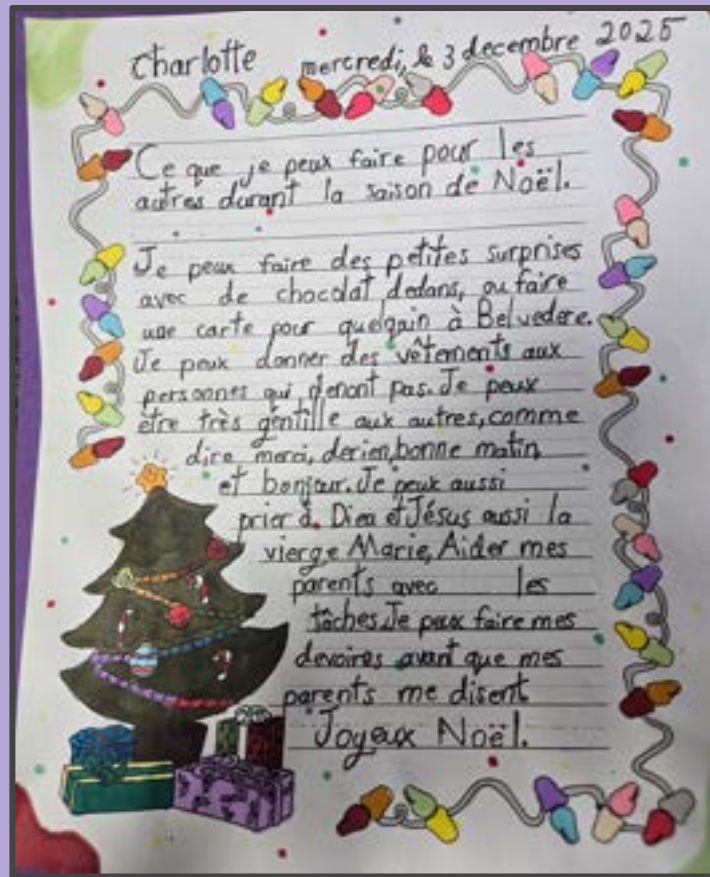 Charlotte mercredi, le 3 decembre 2025
Ce que je peux faire pour les
autres durant la saison de Noël.
Je peux faire des petites surprises
avec de chocolat dedans, ou faire
une carte pour quelqain à Belvedere.
Je peux donner des vêtements aux
personnes qui denont pas. Je peux
être très gentille aux autres, comme
dire merci, derien, bonne matin,
et bonjour. Je peux aussi
prier à Dieu et Jésus aussi la
vierge Marie, Aider mes
parents avec les
tâches. Je peux faire mes
devoires avant que mes
parents me disent
Joyeux Noël.